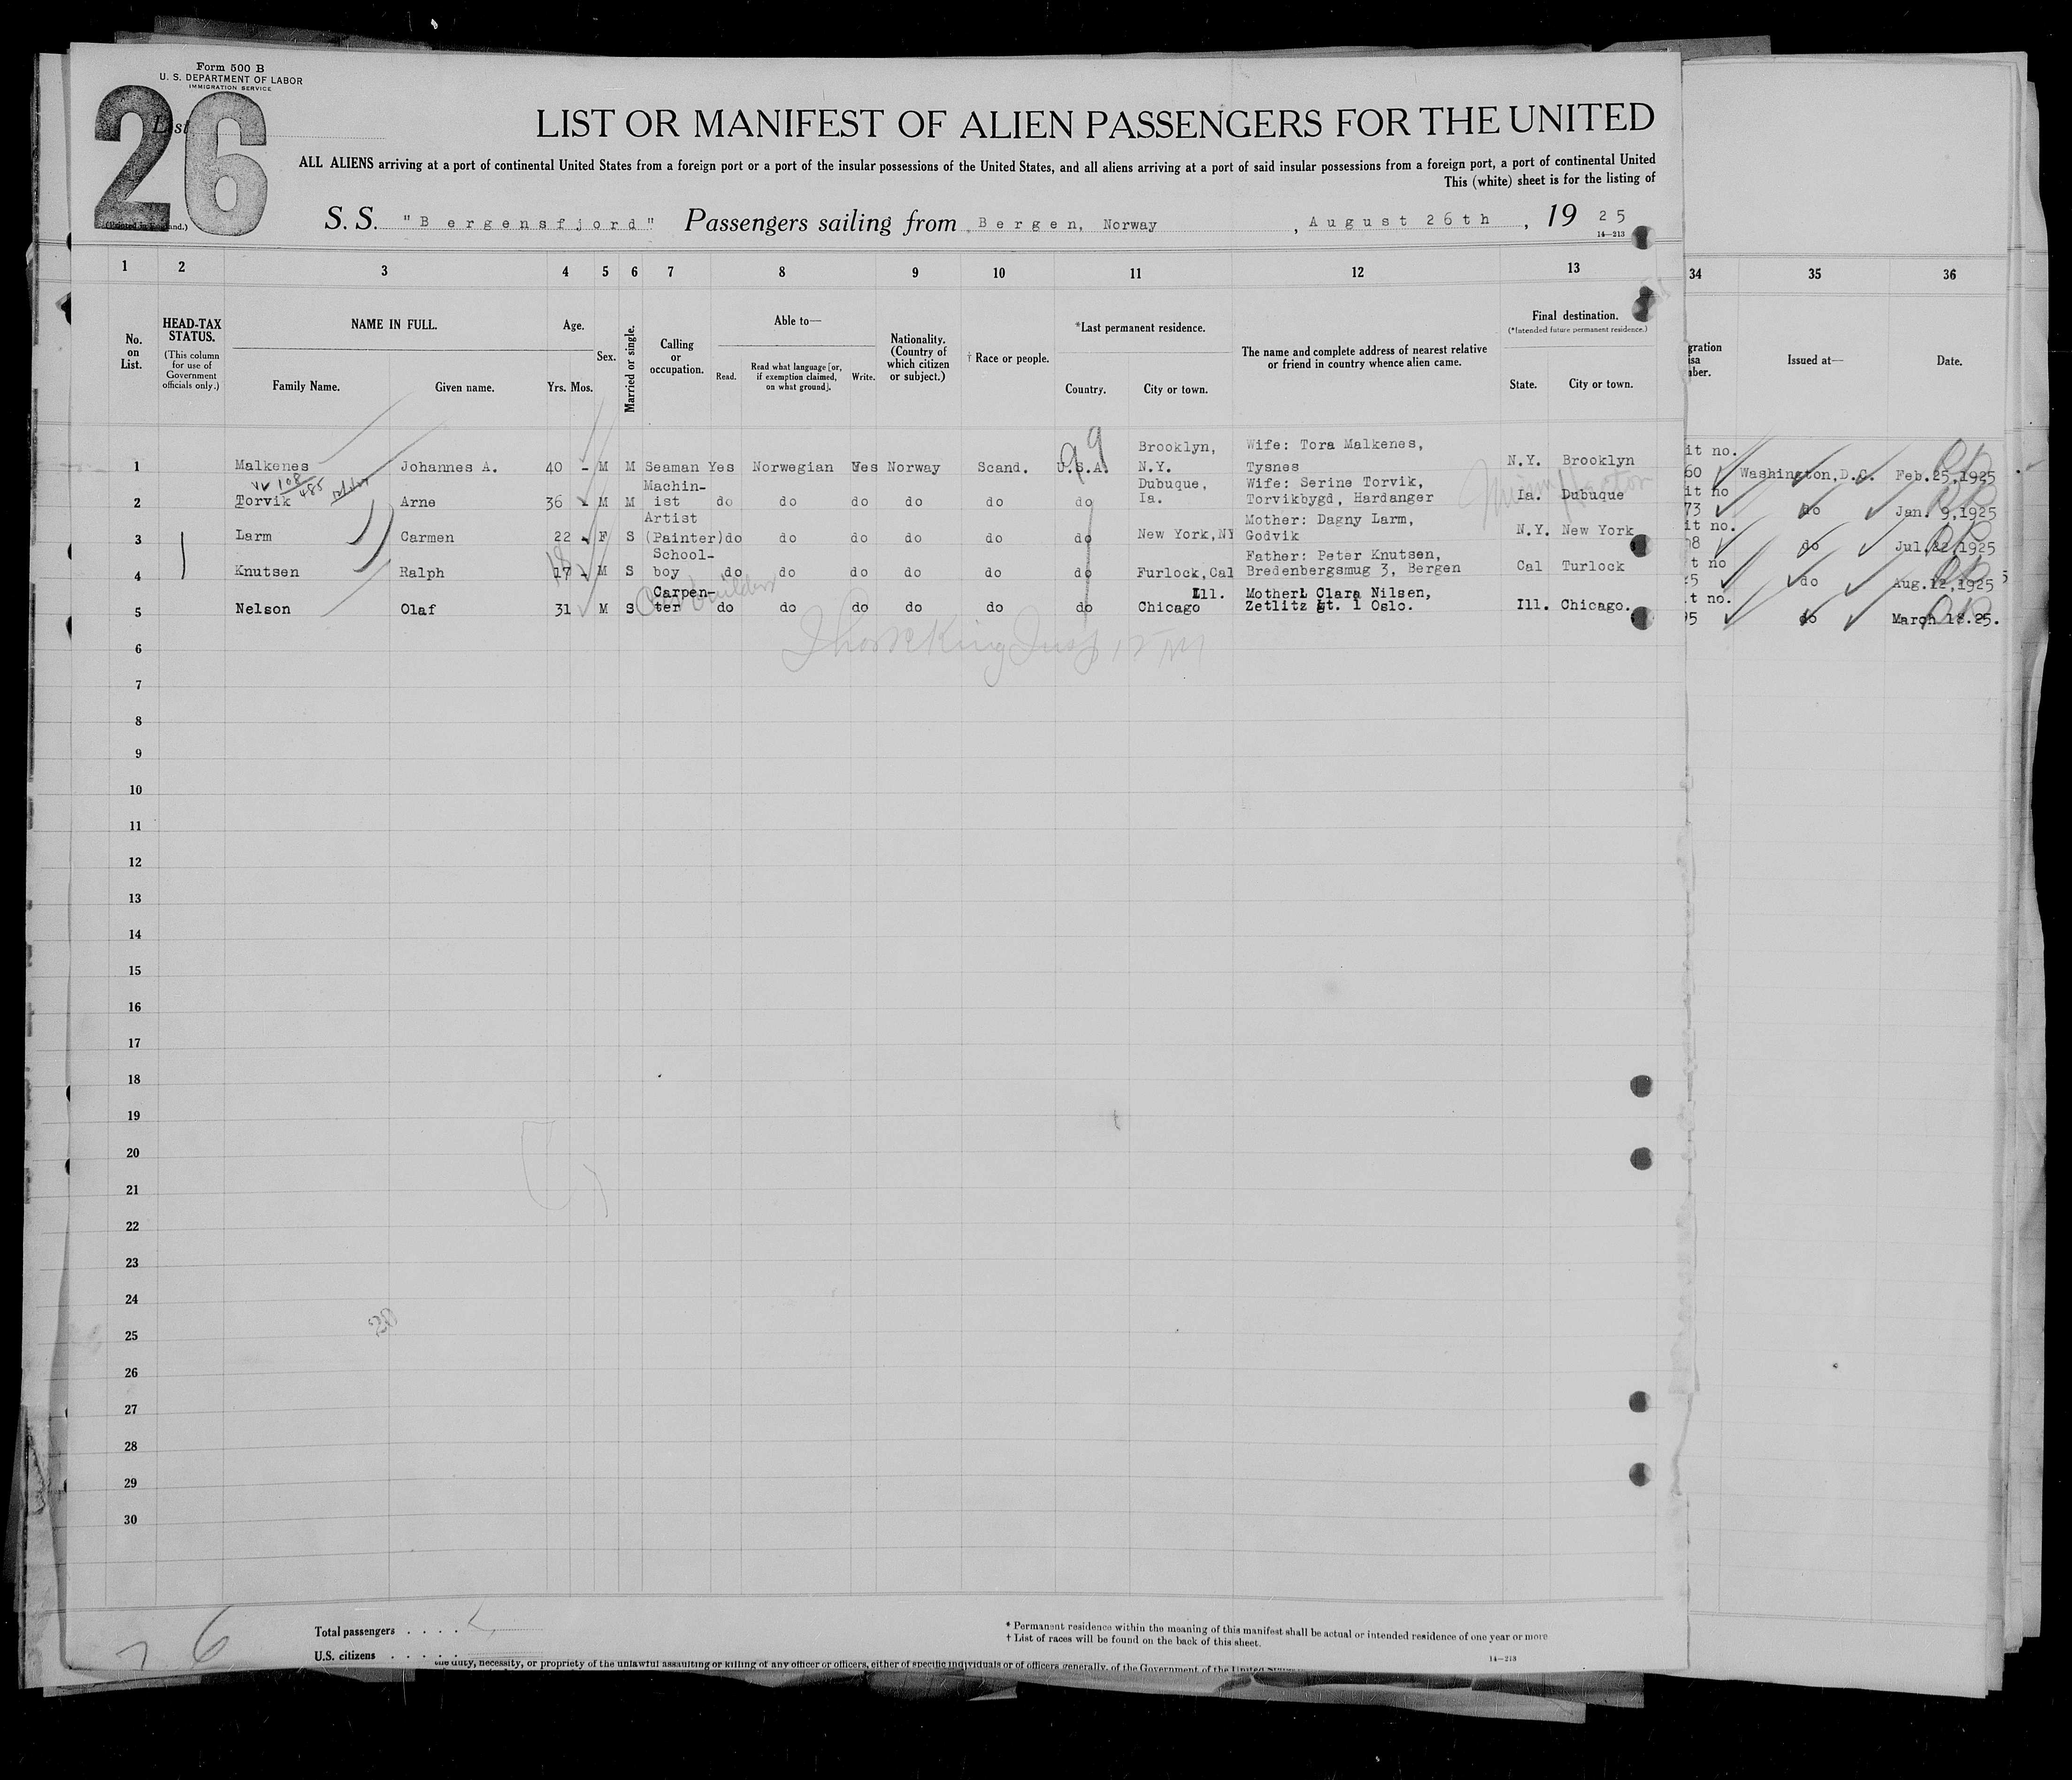 Form 500 B
U. S. DEPARTMENT OF LABOR
IMMIGRATION SERVICE
26
List
(Printed in England.)
LIST OR MANIFEST OF ALIEN PASSENGERS FOR THE UNITED
ALL ALIENS arriving at a port of continental United States from a foreign port or a port of the insular possessions of the United States, and all aliens arriving at a port of said insular possessions from a foreign port, a port of continental United
This (white) sheet is for the listing of
S. S. "Bergensfjord" Passengers sailing from Bergen, Norway, August 26th, 1925
14—213
1 2 3 4 5 6 7 8 9 10 11 12 13 34 35 36
No. on List.
HEAD-TAX STATUS.
(This column for use of Government officials only.)
NAME IN FULL.
Family Name. Given name.
Age.
Yrs. Mos.
Sex.
Married or single.
Calling or occupation.
Able to—
Read. Read what language [or, if exemption claimed, on what ground]. Write.
Nationality. (Country of which citizen or subject.)
† Race or people.
*Last permanent residence.
Country. City or town.
The name and complete address of nearest relative or friend in country whence alien came.
Final destination.
(*Intended future permanent residence.)
State. City or town.
Issued at—
Date.
1 Malkenes Johannes A. 40 - M M Seaman Yes Norwegian Yes Norway Scand. U.S.A. Brooklyn, N.Y. Wife: Tora Malkenes, Tysnes N.Y. Brooklyn it no. 60 Washington, D.C. Feb.25,1925
108
485
2 Torvik Arne 36 - M M Machinist do do do do do do Dubuque, Ia. Wife: Serine Torvik, Torvikbygd, Hardanger Ia. Dubuque it no 73 do Jan. 9,1925
3 Larm Carmen 22 - F S Artist (Painter) do do do do do do New York,NY Mother: Dagny Larm, Godvik N.Y. New York it no. 98 do Jul.22,1925
4 Knutsen Ralph 17 - M S School-boy do do do do do do Furlock,Cal Father: Peter Knutsen, Bredenbergsmug 3, Bergen Cal Turlock t no 5 do Aug.12,1925
5 Nelson Olaf 31 M S Carpen-ter do do do do do do Chicago Ill. Mother: Clara Nilsen, Zetlitz gt. 1 Oslo. Ill. Chicago. t no. 95 do March 18.25.
6
7
8
9
10
11
12
13
14
15
16
17
18
19
20
21
22
23
24
25
26
27
28
29
30
20
6
Total passengers . . . .
U.S. citizens . . . . .
* Permanent residence within the meaning of this manifest shall be actual or intended residence of one year or more
† List of races will be found on the back of this sheet.
14—213
the duty, necessity, or propriety of the unlawful assaulting or killing of any officer or officers, either of specific individuals or of officers generally, of the Government of the United